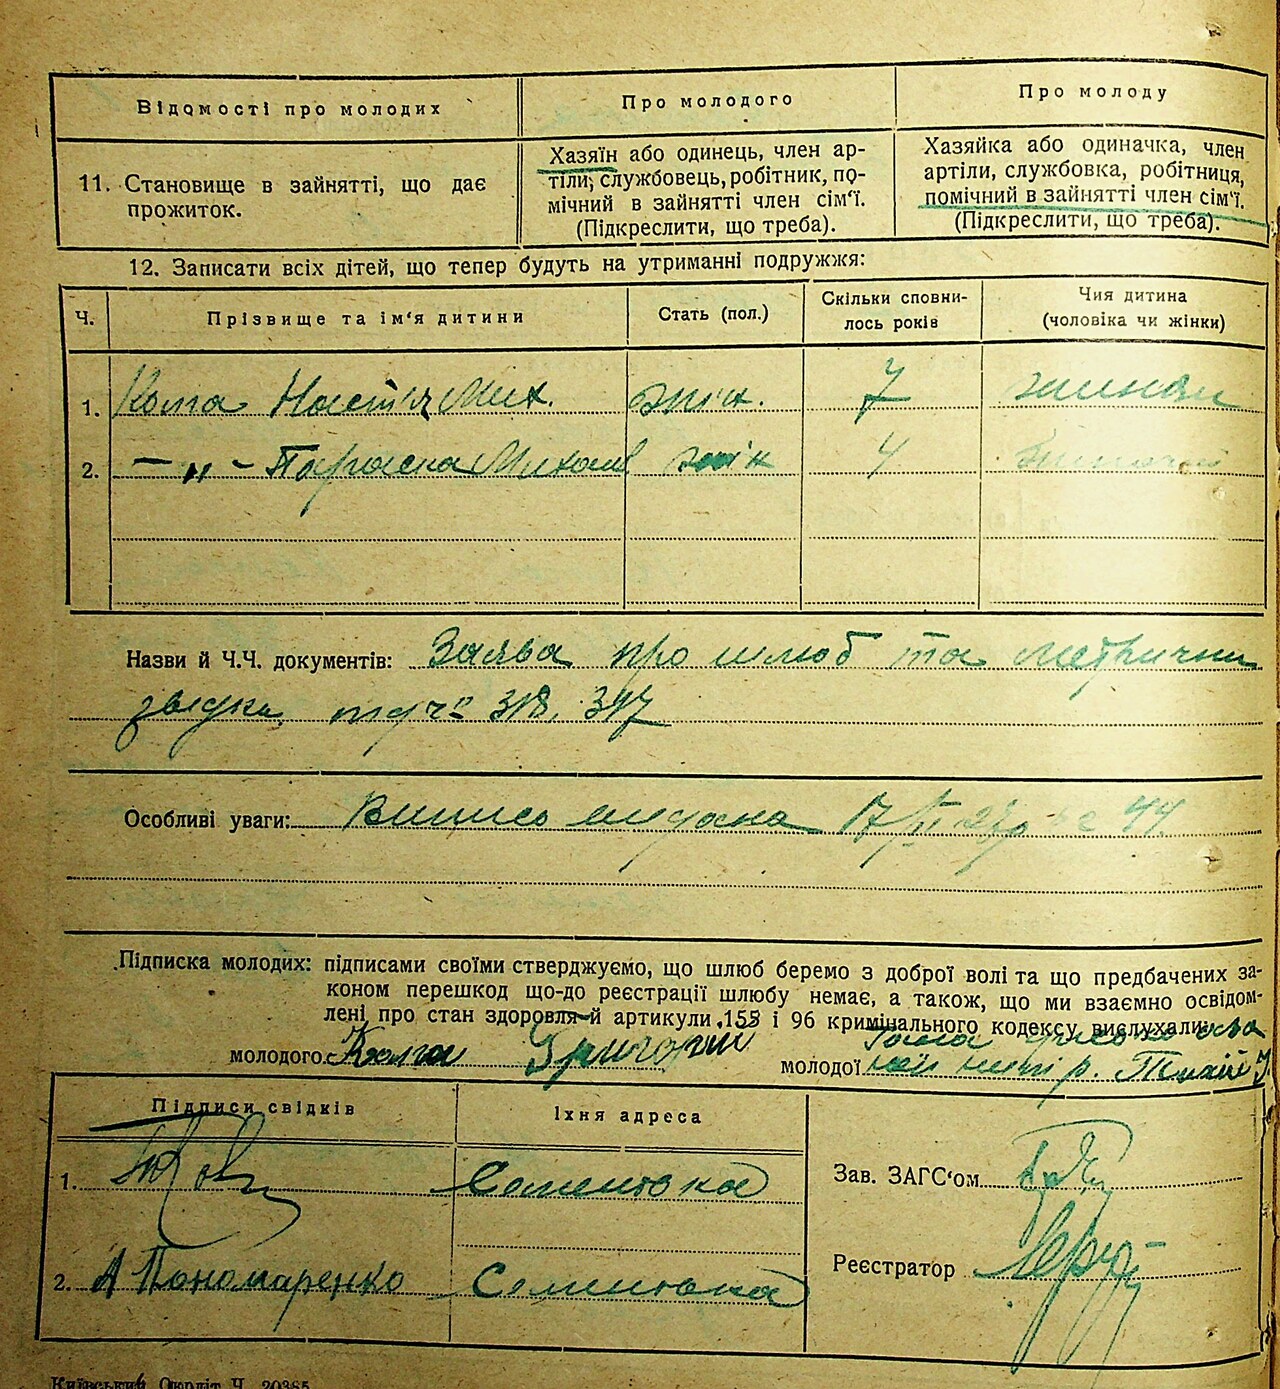 Відомості про молодих
Про молодого
Про молоду
11. Становище в зайнятті, що дає
прожиток.
Хазяїн або одинець, член ар-
тіли, службовець, робітник, по-
мічний в зайнятті член сім'ї.
(Підкреслити, що треба).
Хазяйка або одиначка, член
артіли, службовка, робітниця,
помічний в зайнятті член сім'ї.
(Підкреслити, що треба).
12. Записати всіх дітей, що тепер будуть на утриманні подружжя:
Ч.
Прізвище та ім'я дитини
Стать (пол.)
Скільки сповни-
лось років
Чия дитина
(чоловіка чи жінки)
1. Настя Мих. жін. 7
2. — „ — Параска Михайл жін 4
Назви й Ч.Ч. документів: Заява про шлюб та метричні
318, 317
Особливі уваги: Випись видана 17/ 44
Підписка молодих: підписами своїми стверджуємо, що шлюб беремо з доброї волі та що предбачених за-
коном перешкод що-до реєстрації шлюбу немає, а також, що ми взаємно освідом-
лені про стан здоровля й артикули 155 і 96 кримінального кодексу вислухали:
молодого Григорий
молодої
Підписи свідків
Їхня адреса
1. Семеновка
Зав. ЗАГС'ом
2. А Пономаренко Семеновка
Реєстратор
Київський Окрліт Ч. 20385